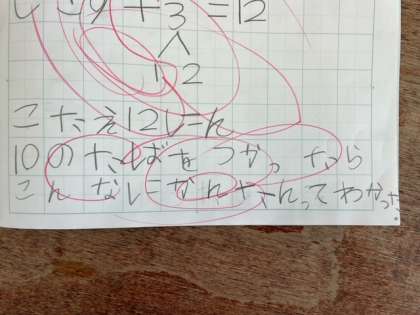 しき9+3=12
1 2
こたえ12にん
10のたばをつかったら
こんなにかんたんってわかった。